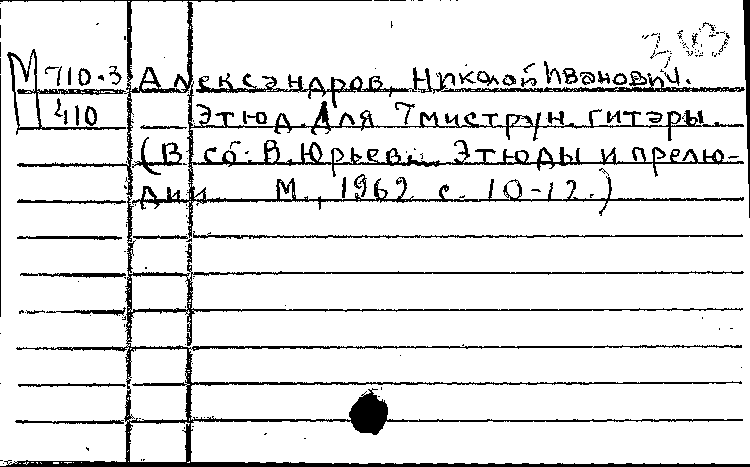 263
М 710-3 Александров, Николай Иванович.
410 Этюд. Для 7миструн. гитары.
(В сб: В. Юрьев. Этюды и прелю-
дии М., 1962 с. 10-12.)